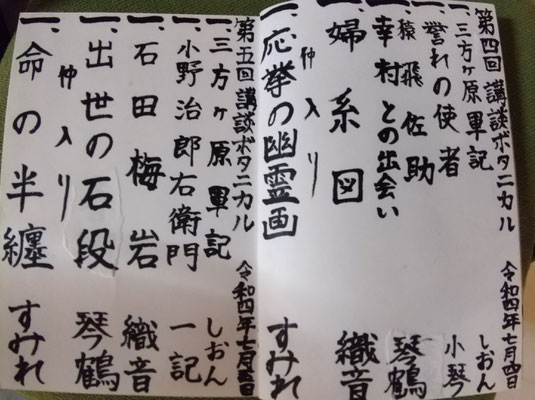 第四回 講談ボタニカル 令和四年七月四日
一、三方ヶ原軍記 しおん
一、誉れの使者 小琴
一、猿飛佐助
幸村との出会い 琴鶴
一、婦系図 織音
仲入り
一、応挙の幽霊画 すみれ
第五回 講談ボタニカル 令和四年七月
一、三方ヶ原軍記 しおん
一、小野治郎右衛門 一記
一、石田梅岩 織音
一、出世の石段 琴鶴
仲入り
一、命の半纏 すみれ